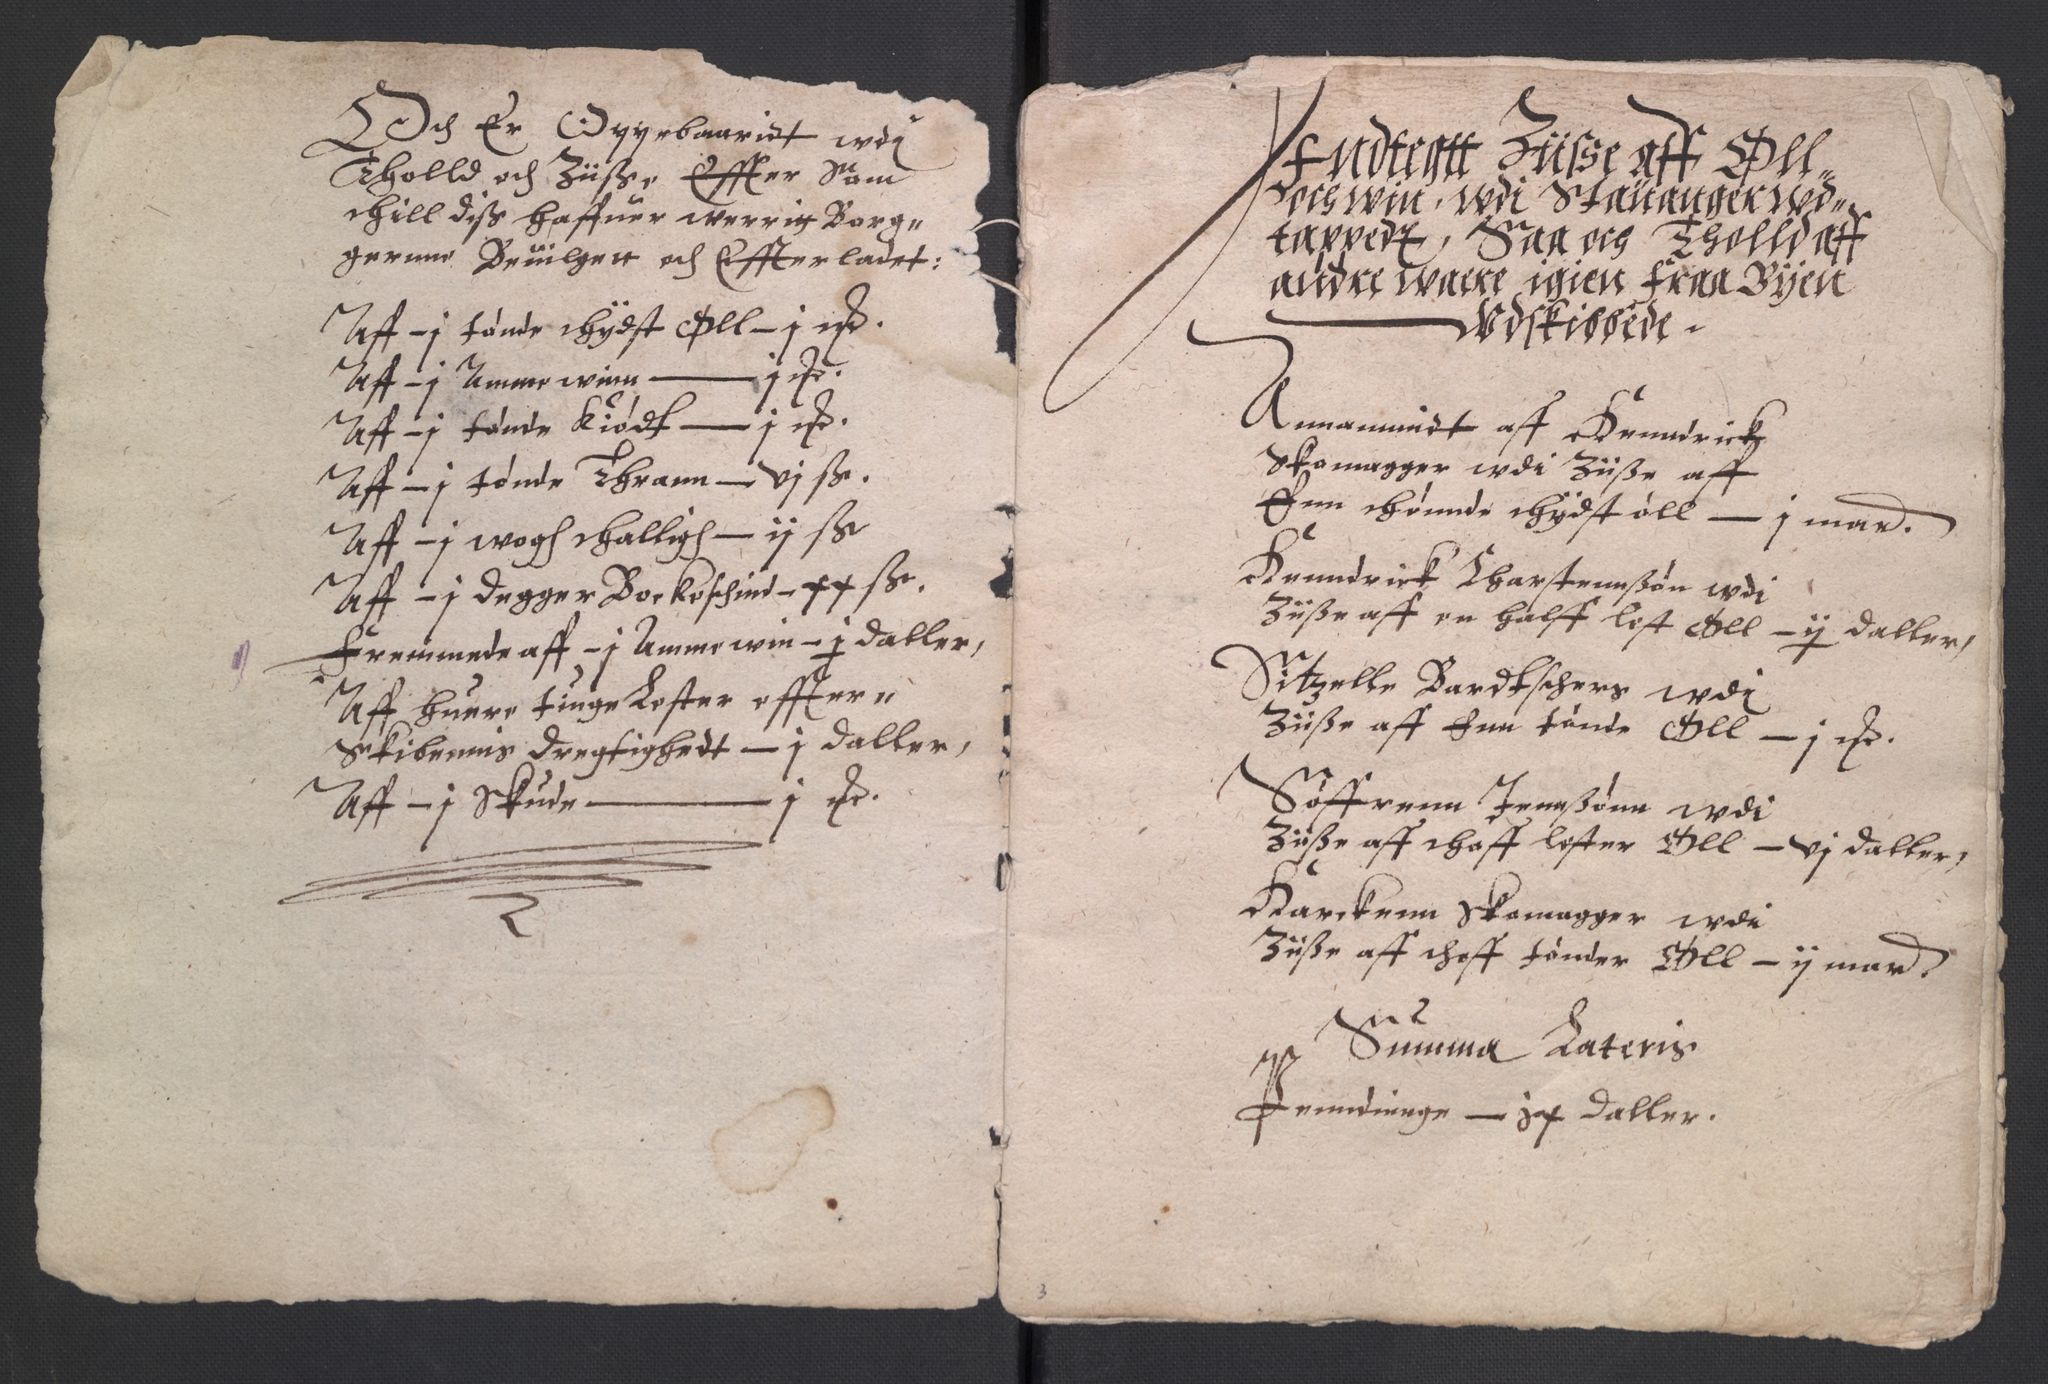 Och Er Oppebaaridt wdi
Tholld och Züsse Effter Som
thill diss haffuer werritt Borg„
gernne Beuilgett och Effterladet:
Aff – j tønde thydst Øll – j mk.
Aff – j Amme winn — j mk.
Aff – j tønde Kiødt — j mk.
Aff – j tønde Thrann — vj ss.
Aff – j wogh thalligh — ij ss
Aff – j degger Bockeschind – xx ss.
Fremmede aff – j Amme win – j daller,
Aff huere tiuge Lester effter„
Skibennis dregtighedt — j daller,
Aff – j Skude — j mk.
Indtegtt Züsse aff Øll„
och win, wdi Stauanger wd„
tappedt, Saa och Tholld aff
andre waere igien fraa Byen
Vdskibbede.
Annammidt aff Henndrick
Skomagger wdi Züsse aff
Enn thønnde thydst øll — j mard.
Henndrick Tharstennssøn wdi
Züsse aff en halff lest Øll – ij daller,
Sitzelle Bardtschers wdi
Züsse aff Enn tønde Øll — j mk.
Søffrenn Jennssønn wdi
Züsse aff thoff lester Øll – vj daller,
Harckenn Skomagger wdi
Züsse aff thoff tønder Øll – ij mard.
Summa Lateris
Penndinge — ix daller.
3